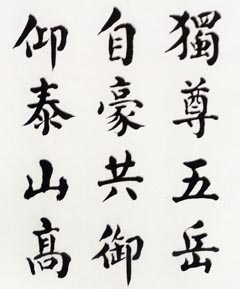 獨尊五岳
自豪共御
仰泰山髙